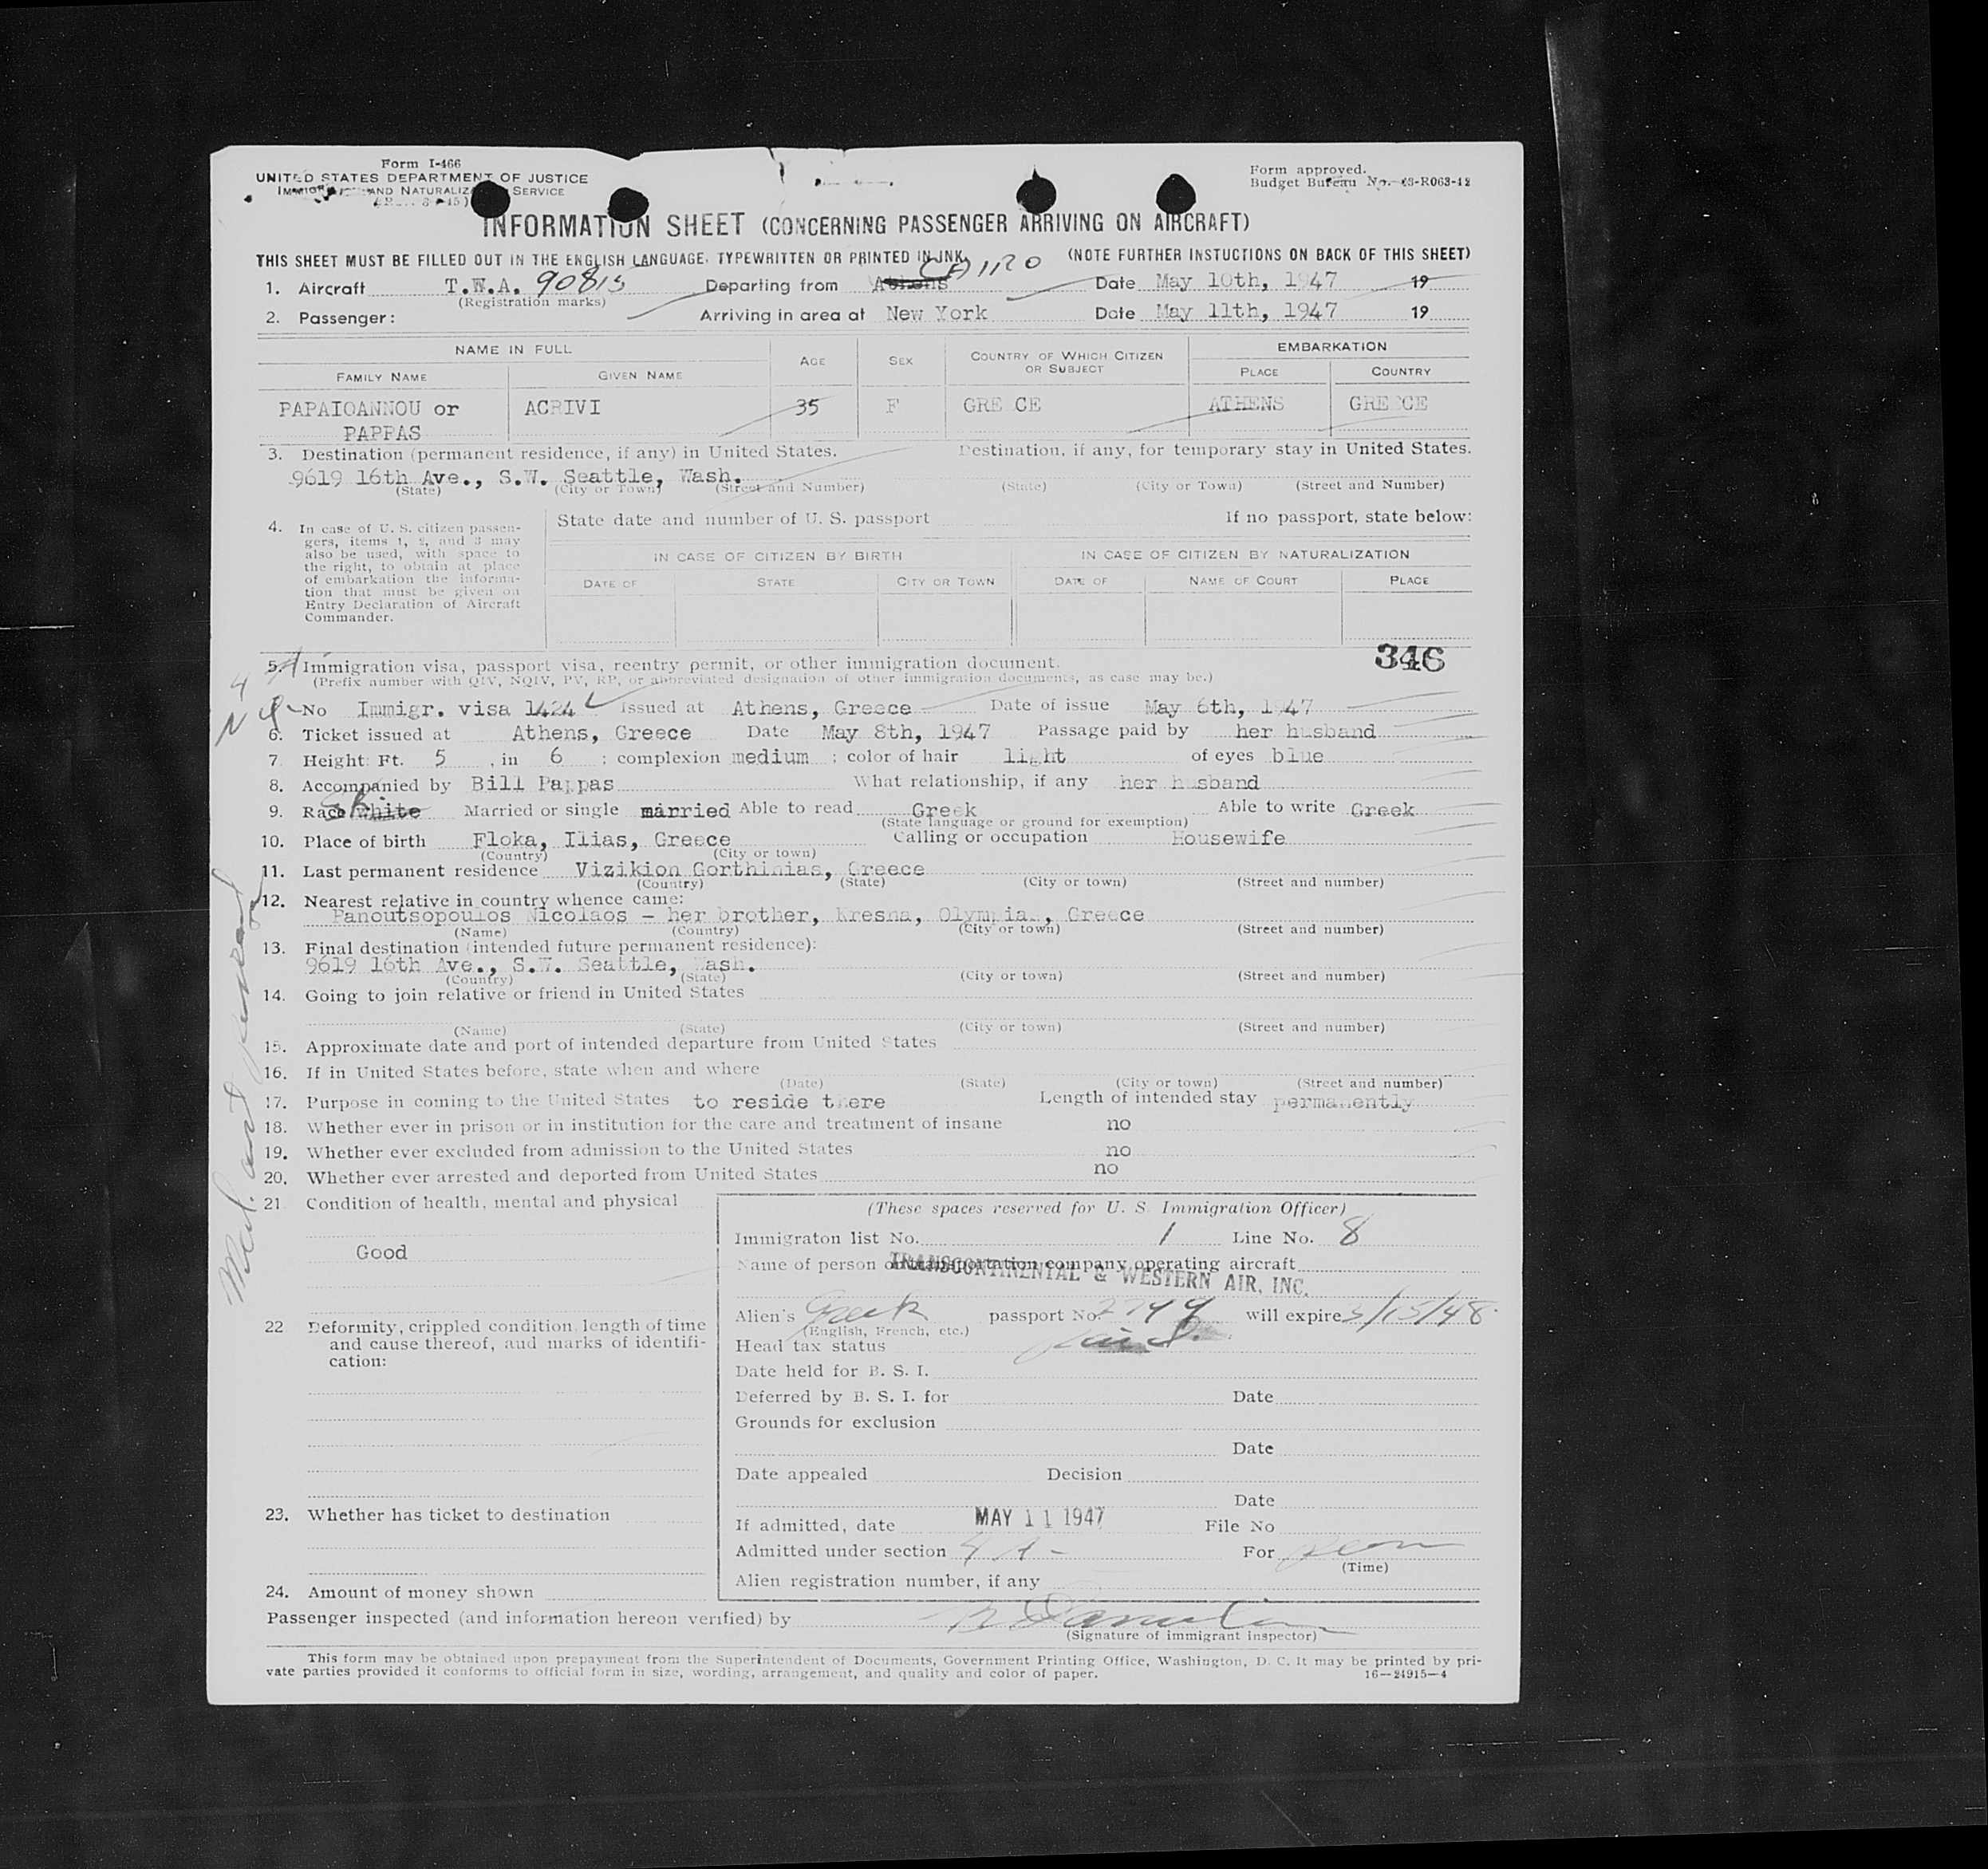 Form I-466
UNITED STATES DEPARTMENT OF JUSTICE
IMMIGRATION AND NATURALIZATION SERVICE
Form approved.
Budget Bureau No. 43-R063-12
INFORMATION SHEET (CONCERNING PASSENGER ARRIVING ON AIRCRAFT)
THIS SHEET MUST BE FILLED OUT IN THE ENGLISH LANGUAGE, TYPEWRITTEN OR PRINTED IN INK. (NOTE FURTHER INSTUCTIONS ON BACK OF THIS SHEET)
CAIRO
1. Aircraft T.W.A. 90815 Departing from Athens Date May 10th, 1947 19
(Registration marks)
2. Passenger: Arriving in area at New York Date May 11th, 1947 19
NAME IN FULL AGE SEX COUNTRY OF WHICH CITIZEN OR SUBJECT EMBARKATION
FAMILY NAME GIVEN NAME PLACE COUNTRY
PAPAIOANNOU or ACRIVI 35 F GRE CE ATHENS GREECE
PAPPAS
3. Destination (permanent residence, if any) in United States. Destination, if any, for temporary stay in United States.
9619 16th Ave., S.W. Seattle, Wash.
(State) (City or Town) (Street and Number) (State) (City or Town) (Street and Number)
4. In case of U. S. citizen passengers, items 1, 2, and 3 may also be used, with space to the right, to obtain at place of embarkation the information that must be given on Entry Declaration of Aircraft Commander.
State date and number of U. S. passport If no passport, state below:
IN CASE OF CITIZEN BY BIRTH IN CASE OF CITIZEN BY NATURALIZATION
DATE OF STATE CITY OR TOWN DATE OF NAME OF COURT PLACE
346
5. Immigration visa, passport visa, reentry permit, or other immigration document.
(Prefix number with QIV, NQIV, PV, RP, or abbreviated designation of other immigration documents, as case may be.)
No Immigr. visa 1424 Issued at Athens, Greece Date of issue May 6th, 1947
6. Ticket issued at Athens, Greece Date May 8th, 1947 Passage paid by her husband
7. Height: Ft. 5, in 6; complexion medium; color of hair light of eyes blue
8. Accompanied by Bill Pappas What relationship, if any her husband
9. Race White Married or single married Able to read Greek Able to write Greek
(State language or ground for exemption)
10. Place of birth Floka, Ilias, Greece Calling or occupation Housewife
(Country) (City or town)
11. Last permanent residence Vizikion Gorthinias, Greece
(Country) (State) (City or town) (Street and number)
12. Nearest relative in country whence came:
Panoutsopoulos Nicolaos - her brother, Kresna, Olympias, Greece
(Name) (Country) (City or town) (Street and number)
13. Final destination (intended future permanent residence):
9619 16th Ave., S.W. Seattle, Wash.
(Country) (State) (City or town) (Street and number)
14. Going to join relative or friend in United States
(Name) (State) (City or town) (Street and number)
15. Approximate date and port of intended departure from United States
16. If in United States before, state when and where
(Date) (State) (City or town) (Street and number)
17. Purpose in coming to the United States to reside there Length of intended stay permanently
18. Whether ever in prison or in institution for the care and treatment of insane no
19. Whether ever excluded from admission to the United States no
20. Whether ever arrested and deported from United States no
21 Condition of health, mental and physical
Good
22 Deformity, crippled condition, length of time
and cause thereof, and marks of identification:
23. Whether has ticket to destination
24. Amount of money shown
(These spaces reserved for U. S. Immigration Officer)
Immigraton list No. 1 Line No. 8
Name of person or transportation company operating aircraft
TRANSCONTINENTAL & WESTERN AIR, INC.
Alien's Greek passport No. 2744 will expire 3/15/48
(English, French, etc.)
Head tax status paid
Date held for B. S. I.
Deferred by B. S. I. for Date
Grounds for exclusion
Date
Date appealed Decision
Date
If admitted, date MAY 11 1947 File No
Admitted under section 4 A - For perm
(Time)
Alien registration number, if any
Passenger inspected (and information hereon verified) by
(Signature of immigrant inspector)
This form may be obtained upon prepayment from the Superintendent of Documents, Government Printing Office, Washington, D. C. It may be printed by pri-
vate parties provided it conforms to official form in size, wording, arrangement, and quality and color of paper. 16—24915—4